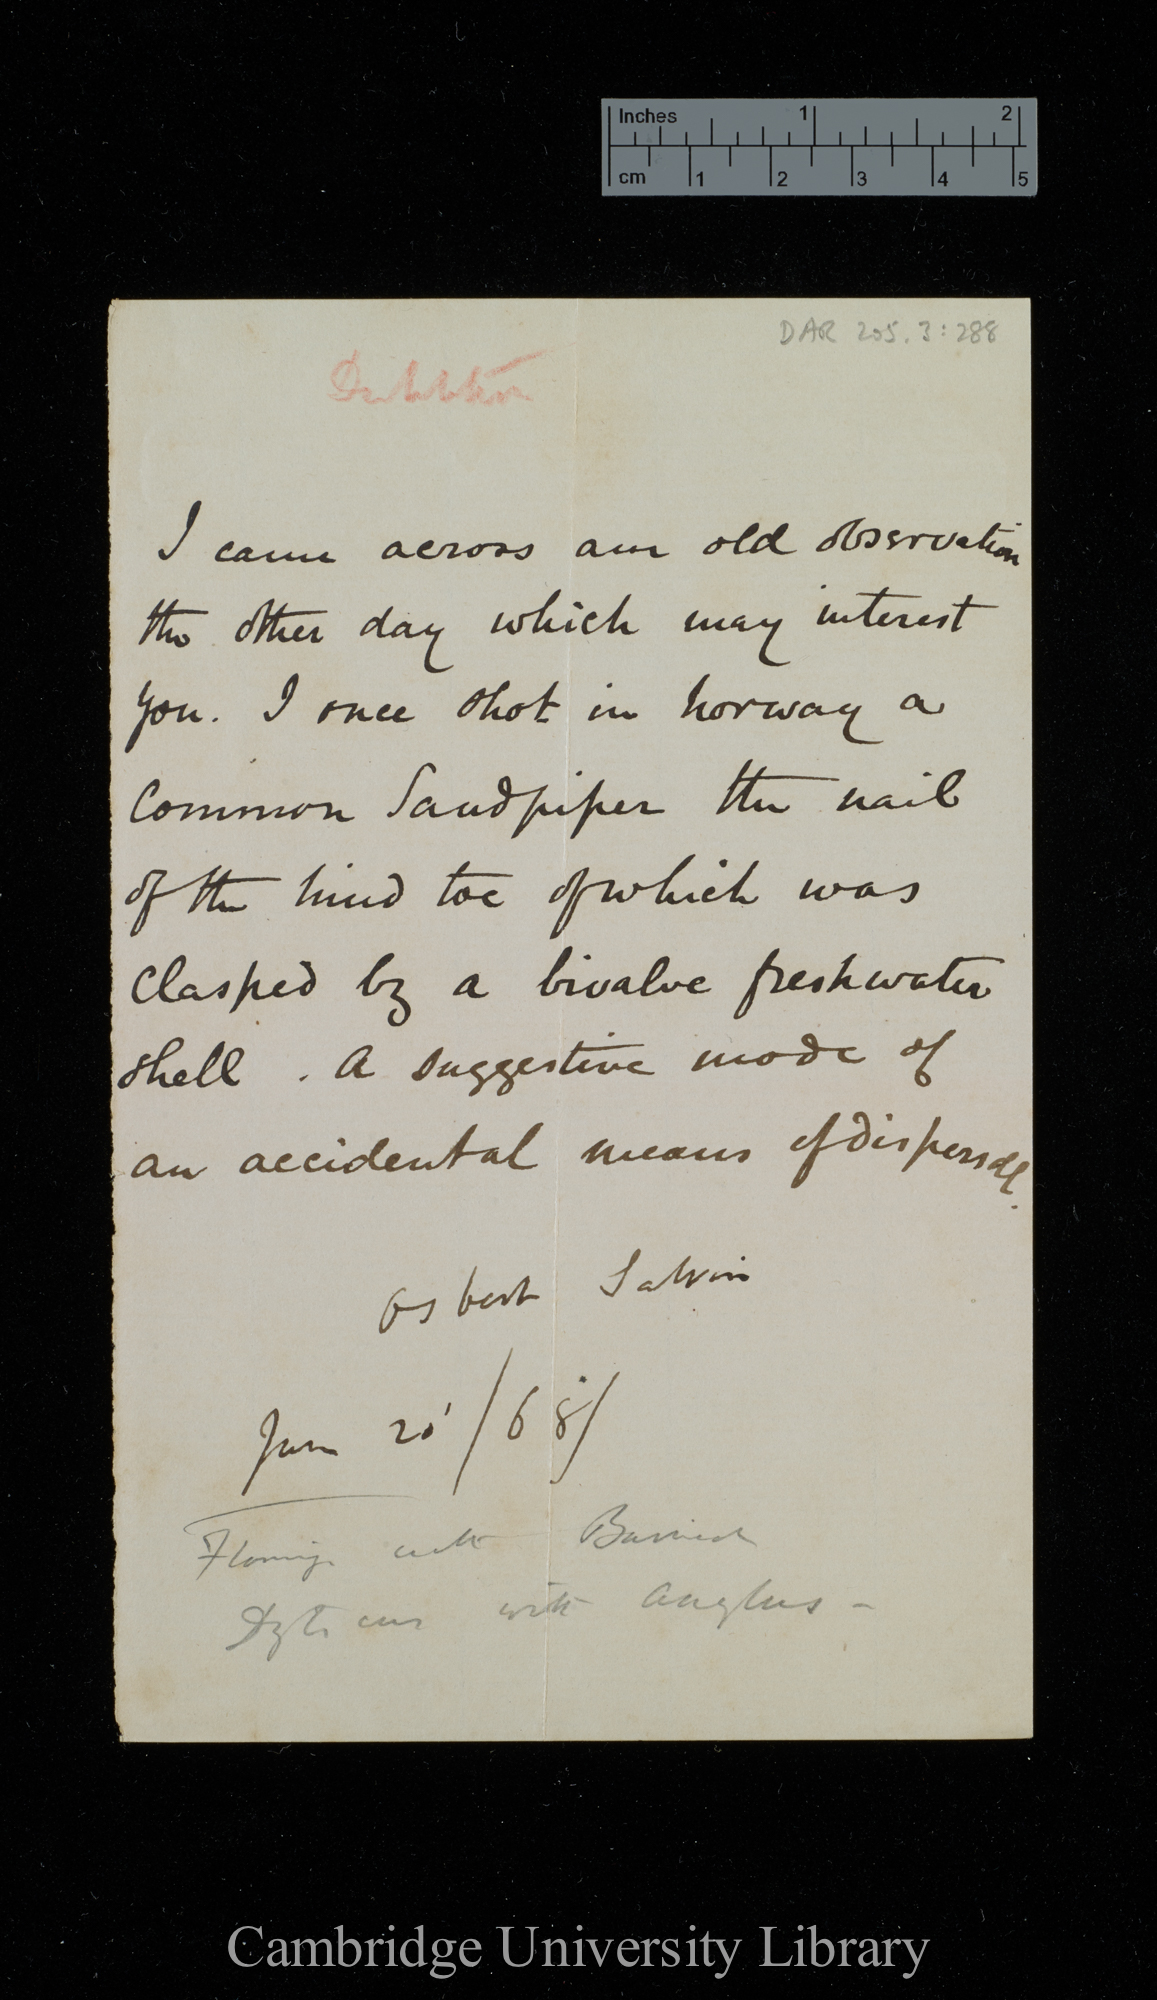 Inches 1 2
cm 1 2 3 4 5
DAR 205.3:288
I came across an old observation
the other day which may interest
you. I once shot in Norway a
Common Sandpiper the nail
of the hind toe of which was
clasped by a bivalve freshwater
shell. A suggestive mode of
an accidental means of dispersal.
Osbert Salvin
June 20/68/
with
Dyticus with Ancylus -
Cambridge University Library